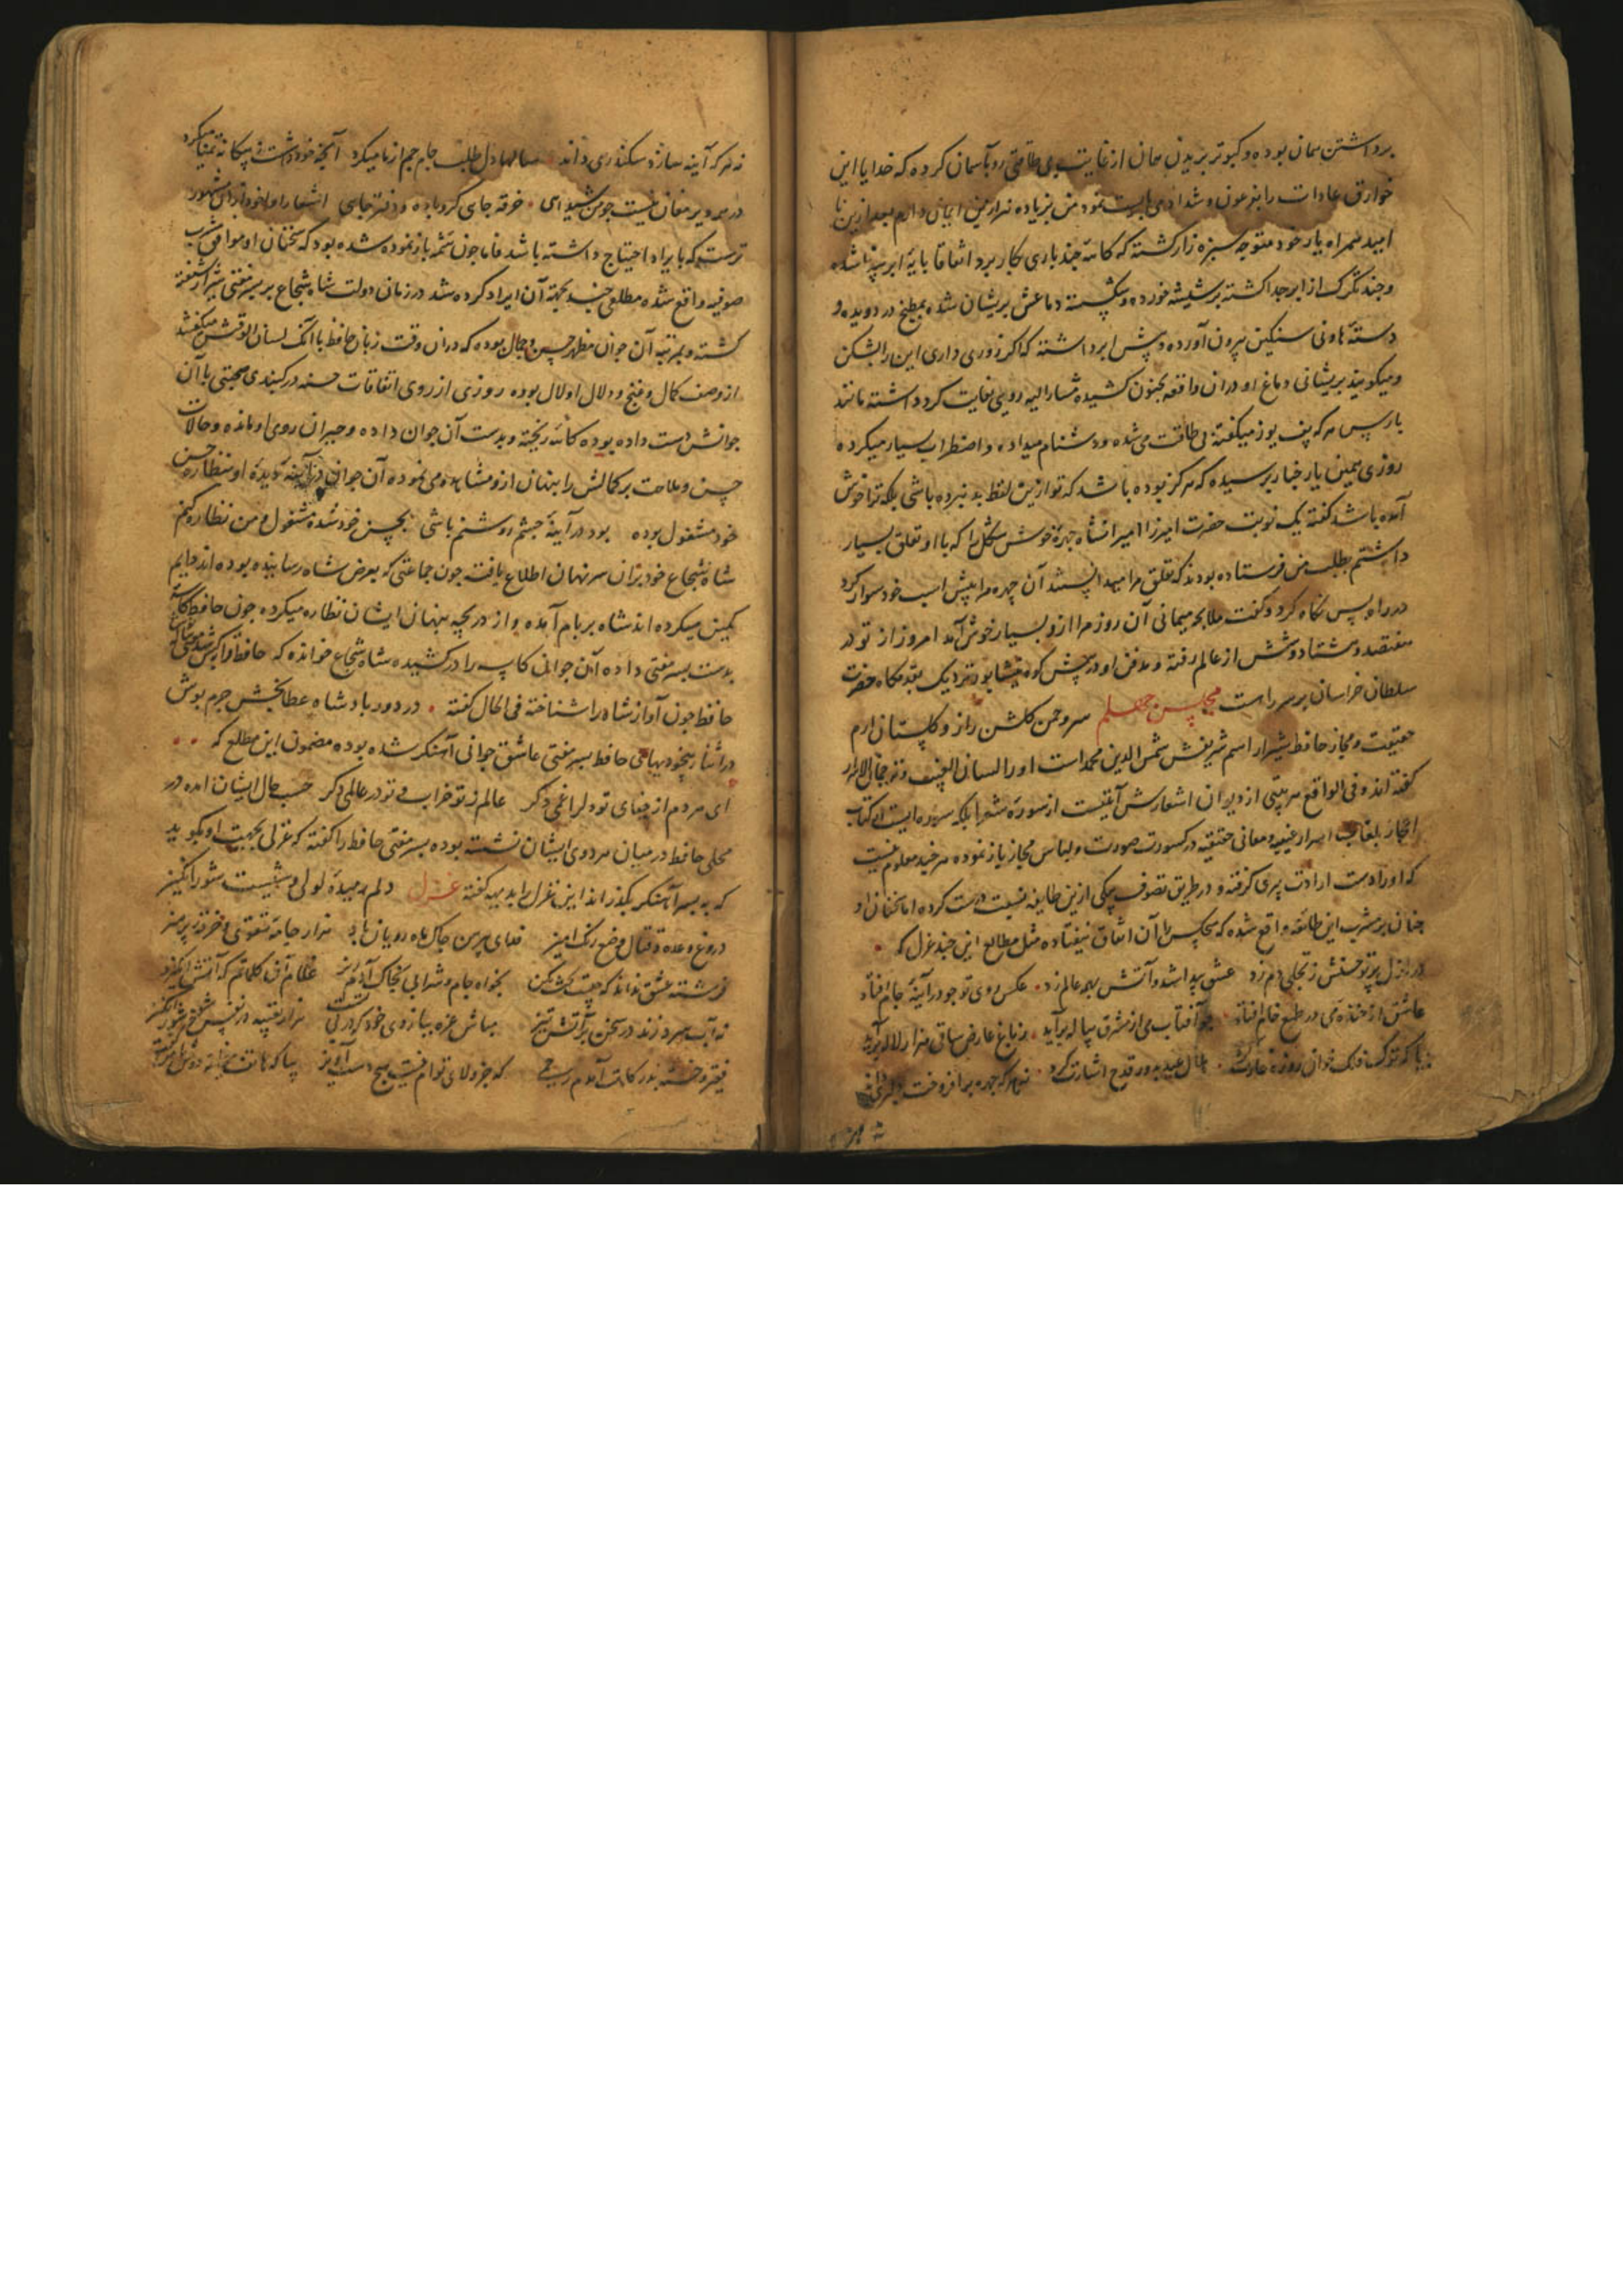 برداشتن همان بوده و کبوتر پریدن همان از غایت بی طاقتی رو بآسمان کرده که خدایا این
خوارق عادات را بفرعون و شداد می بایست نمود من بنزیاده هزار من ایمان دارم بعد از این با
امید همراه یار خود متوجه سبزه زار کشته که کاسه چند باری بکار برد اتفاقا پایهٔ ابر شده
و چند تکرک از ابر جدا کشته بر شیشه خورده و شکسته دماغش پریشان شده بمطبخ در دویده و
دستهٔ هاونی سنکین بیرون آورده و پیش ابر داشته که اکر زوری داری این را بشکن
و میکویند پریشانی دماغ او در ان واقعه بجنون کشیده مشار الیه رویی بغایت کرد داشته مانند
یار پس هر که پف یوز میکفته بی طاقت می شده و دشنام میداده و اضطراب بسیار میکرده
روزی همین یار خبار پرسیده که هرکز بوده باشد که تو ازین لفظ بد نبرده باشی بلکه ترا خوش
آمده باشد کفته یک نوبت حضرت امیرزا امیرانشاه چهرهٔ خوش شکل را که با او تعلق بسیار
داشتم بطلب من فرستاده بودند که تعلق مرا میدانستند آن چهره مرا پیش اسب خود سوار کرد
در راه پس نکاه کرد و کفت ملا بچه میمانی آن روز مرا ازو بسیار خوش آمد امروز از تو در
هفتصد و هشتاد و شش از عالم رفته و مدفن او در پیش کوه نیشابور نزدیک بقدمکاه حضرت
سلطان خراسان بر سر راهست مجلس چهلم سرو چمن کلشن راز و کلستان ارم
حقیقت و مجاز حافظ شیراز اسم شریفش شمس الدین محمد است او را لسان الغیب و ترجمان الاسرار
کفته اند و فی الواقع هر بیتی از دیوان اشعارش آیتیست از سورهٔ شعرا بلکه سوره ایست از کتاب
اعجاز بلغا اسرار غیبیه و معانی حقیقیه در کسوت صورت و لباس مجاز باز نموده هر چند معلوم نیست
که او را دست ارادت پیری کرفته و در طریق تصوف بیکی ازین طایفه نسبت درست کرده اما سخنان او
چنان بر مشرب این طائفه واقع شده که هیچکس را آن اتفاق نیفتاده مثل مطالع این چند غزل که
در ازل پرتو حسنش ز تجلی دم زد عشق پیدا شد و آتش بهمه عالم زد عکس روی تو چو در آینهٔ جام افتاد
عاشق از خندهٔ می در طمع خام افتاد چو آفتاب می از مشرق پیاله برآید ز باغ عارض ساقی هزار لاله برآید
بیا که ترک فلک خوان روزه غارت کرد هلال عید بدور قدح اشارت کرد نه هر که چهره برافروخت دلبری داند
نه هر
نه هر که آینه سازد سکندری داند سالها دل طلب جام جم از ما میکرد آنچه خود داشت ز بیکانه تمنا میکرد
در همه دیر مغان نیست چو من شیدایی خرقه جایی کرو باده و دفتر جایی اشعار او خود از آن مشهور
ترست که بایراد احتیاج داشته باشد فاما چون شمهٔ باز نموده شده بود که سخنان او موافق مشرب
صوفیه واقع شده مطلعی چند بجهة آن ایراد کرده شد در زمان دولت شاه شجاع بر پسر مفتی شیراز شیفته
کشته و بمرتبهٔ آن جوان مظهر حسن و جمال بوده که در ان وقت زبان حافظ با آنک لسان الوقتش میکفتند
از وصف کمال و غنج و دلال او لال بوده روزی از روی اتفاقات حسنه در کنبدی صحبتی با آن
جوانش دست داده بوده کاسه ریخته و بدست آن جوان داده و حیران روی او مانده و حالات
حسن و ملاحت بر کمالش را پنهان ازو مشاهده می نموده آن جوان در آینه دیده او بنظاره حسن
خود مشغول بوده بود در آینهٔ چشم روشنم باشی بحسن خود شده مشغول و من نظاره کنم
شاه شجاع خود بران سر نهان اطلاع یافته چون جماعتی که بعرض شاه رسانیده بوده اند دایم
کمین میکرده اند شاه بر بام آمده و از دریچه پنهان ایشان نظاره میکرده چون حافظ کاسه
بدست پسر مفتی داده آن جوان کاسه را در کشیده شاه شجاع خوانده که حافظ قرابه کش شد و مفتی پیاله نوش
حافظ چون آواز شاه را شناخته فی الحال کفته در دور پادشاه عطا بخش جرم پوش
در اثنا بیخودیهای حافظ پسر مفتی عاشق جوانی آهنکر شده بوده مضمون این مطلع که
ای مردم از جفای تو دل را غمی دکر عالم ز تو خراب و تو در عالمی دکر حسب حال ایشان آمده در
محلی حافظ در میان هر دوی ایشان نشسته بوده پسر مفتی حافظ را کفته که غزلی بجهت او بکویید
که به پسر آهنکر بکذراند این غزل را بدیهه کفته غزل دلم رمیدهٔ لولی وشیست شور انکیز
دروغ وعده و قتال وضع و رنک آمیز فدای پیرهن چاک ماه رویان باد هزار جامهٔ تقوی و خرقهٔ پرهیز
فرشته عشق نداند که چیست قصه مکن بخواه جام و شرابی بخاک آدم ریز غلام آن کلماتم که آتش انکیزد
نه آب سرد زند در سخن بر آتش تیز مباش غره ببازوی خود که در خبرست هزار تعبیه در
فقیر و خسته بدرکاهت آمدم رحمی که جز ولای توام نیست هیچ دست آویز بیا که هاتف میخانه دوش با من کفت